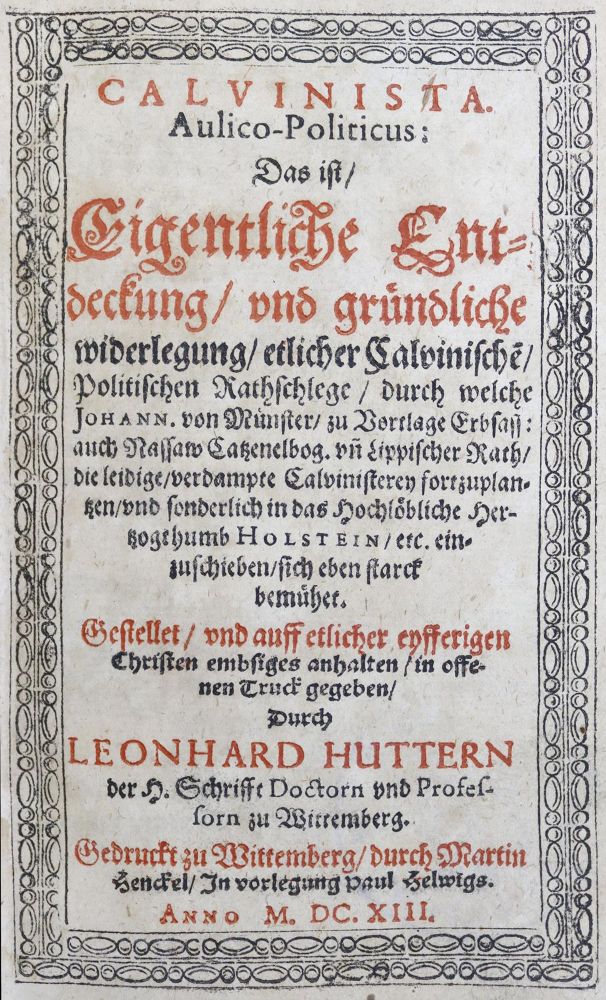 CALVINISTA.
Aulico-Politicus:
Das ist/
Eigentliche Ent-
deckung/ vnd gründliche
widerlegung/ etlicher Calvinischẽ/
Politischen Rathschlege/ durch welche
JOHANN. von Münster/ zu Vortlage Erbsaß:
auch Nassaw Catzenelbog. vñ Lippischer Rath/
die leidige/verdampte Calvinisterey fortzuplan-
tzen/vnd sonderlich in das Hochlöbliche Her-
tzogthumb HOLSTEIN/ etc. ein-
zuschieben/sich eben starck
bemühet.
Gestellet/ vnd auff etlicher eyfferigen
Christen embsiges anhalten/ in offe-
nen Truck gegeben/
Durch
LEONHARD HUTTERN
der H. Schrifft Doctorn vnd Profes-
sorn zu Wittemberg.
Gedruckt zu Wittemberg/ durch Martin
Henckel/ In vorlegung Paul Helwigs.
ANNO M. DC. XIII.